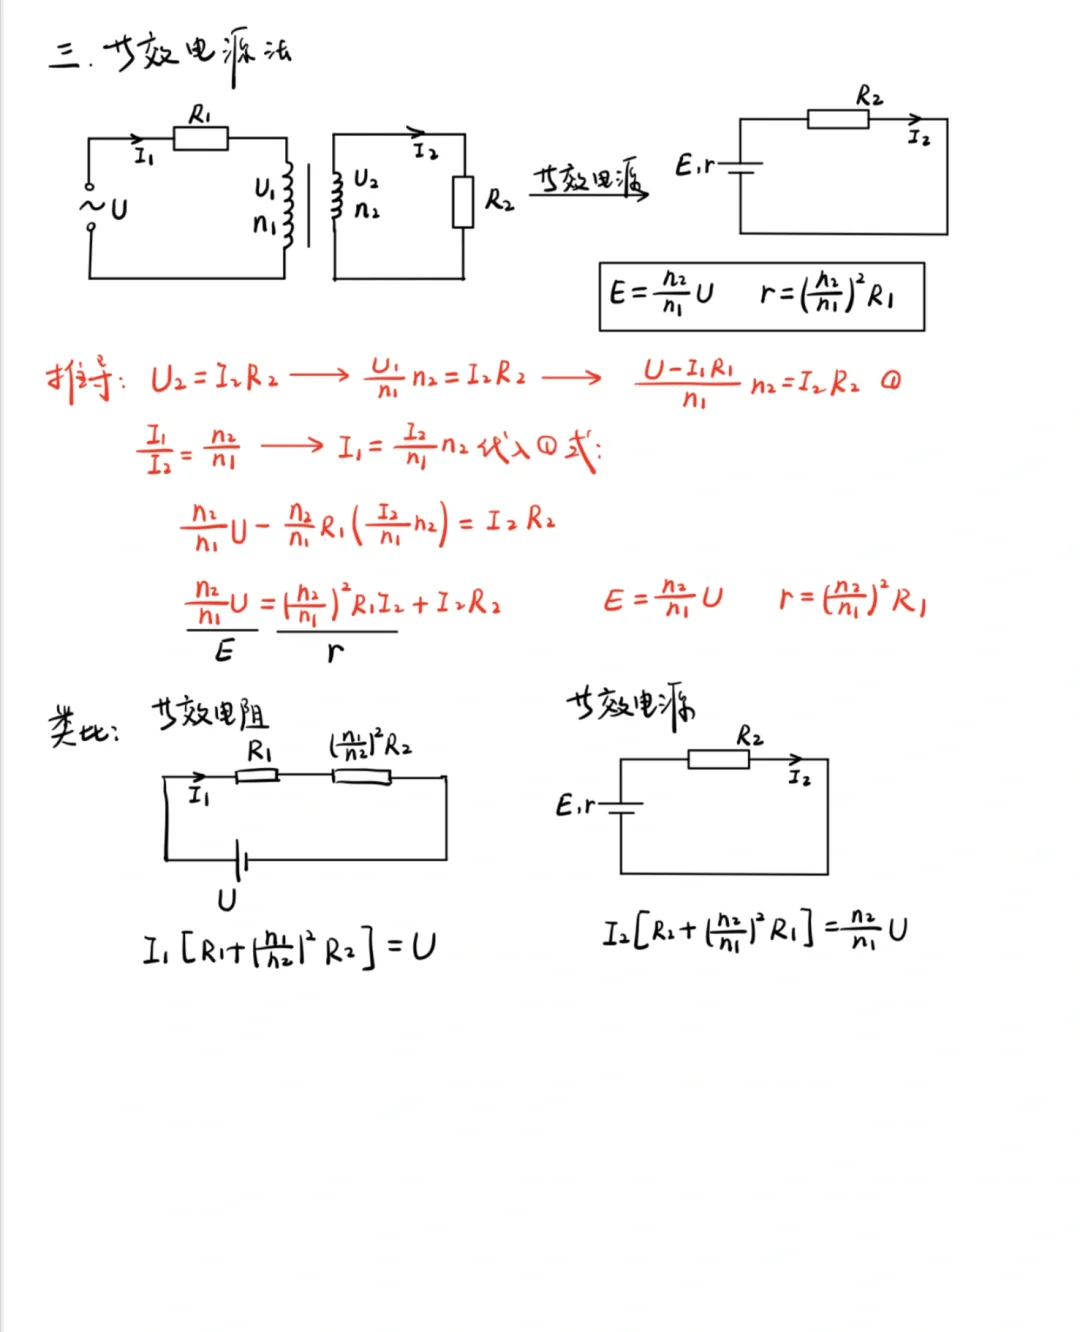 三.等效电源法
R₁
I₁
~U
U₁
n₁
U₂
n₂
I₂
R₂
等效电源
E,r
R₂
I₂
E=\frac{n₂}{n₁}U r=(\frac{n₂}{n₁})²R₁
推导: U₂=I₂R₂ → \frac{U₁}{n₁}n₂=I₂R₂ → \frac{U-I₁R₁}{n₁}n₂=I₂R₂ ①
\frac{I₁}{I₂}=\frac{n₂}{n₁} → I₁=\frac{I₂}{n₁}n₂代入①式:
\frac{n₂}{n₁}U-\frac{n₂}{n₁}R₁(\frac{I₂}{n₁}n₂)=I₂R₂
\frac{n₂}{n₁}U=(\frac{n₂}{n₁})²R₁I₂+I₂R₂ E=\frac{n₂}{n₁}U r=(\frac{n₂}{n₁})²R₁
E r
类比: 等效电阻
R₁ (\frac{n₁}{n₂})²R₂
I₁
U
I₁[R₁+(\frac{n₁}{n₂})²R₂]=U
等效电源
R₂
I₂
E,r
I₂[R₂+(\frac{n₂}{n₁})²R₁]=\frac{n₂}{n₁}U